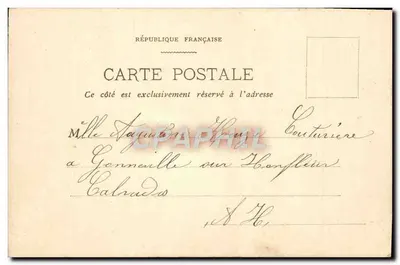 RÉPUBLIQUE FRANÇAISE
CARTE POSTALE
Ce côté est exclusivement réservé à l'adresse
Mlle Couturière
a Gonneville sur Honfleur
Calvados
A. H.
CPAPHIL